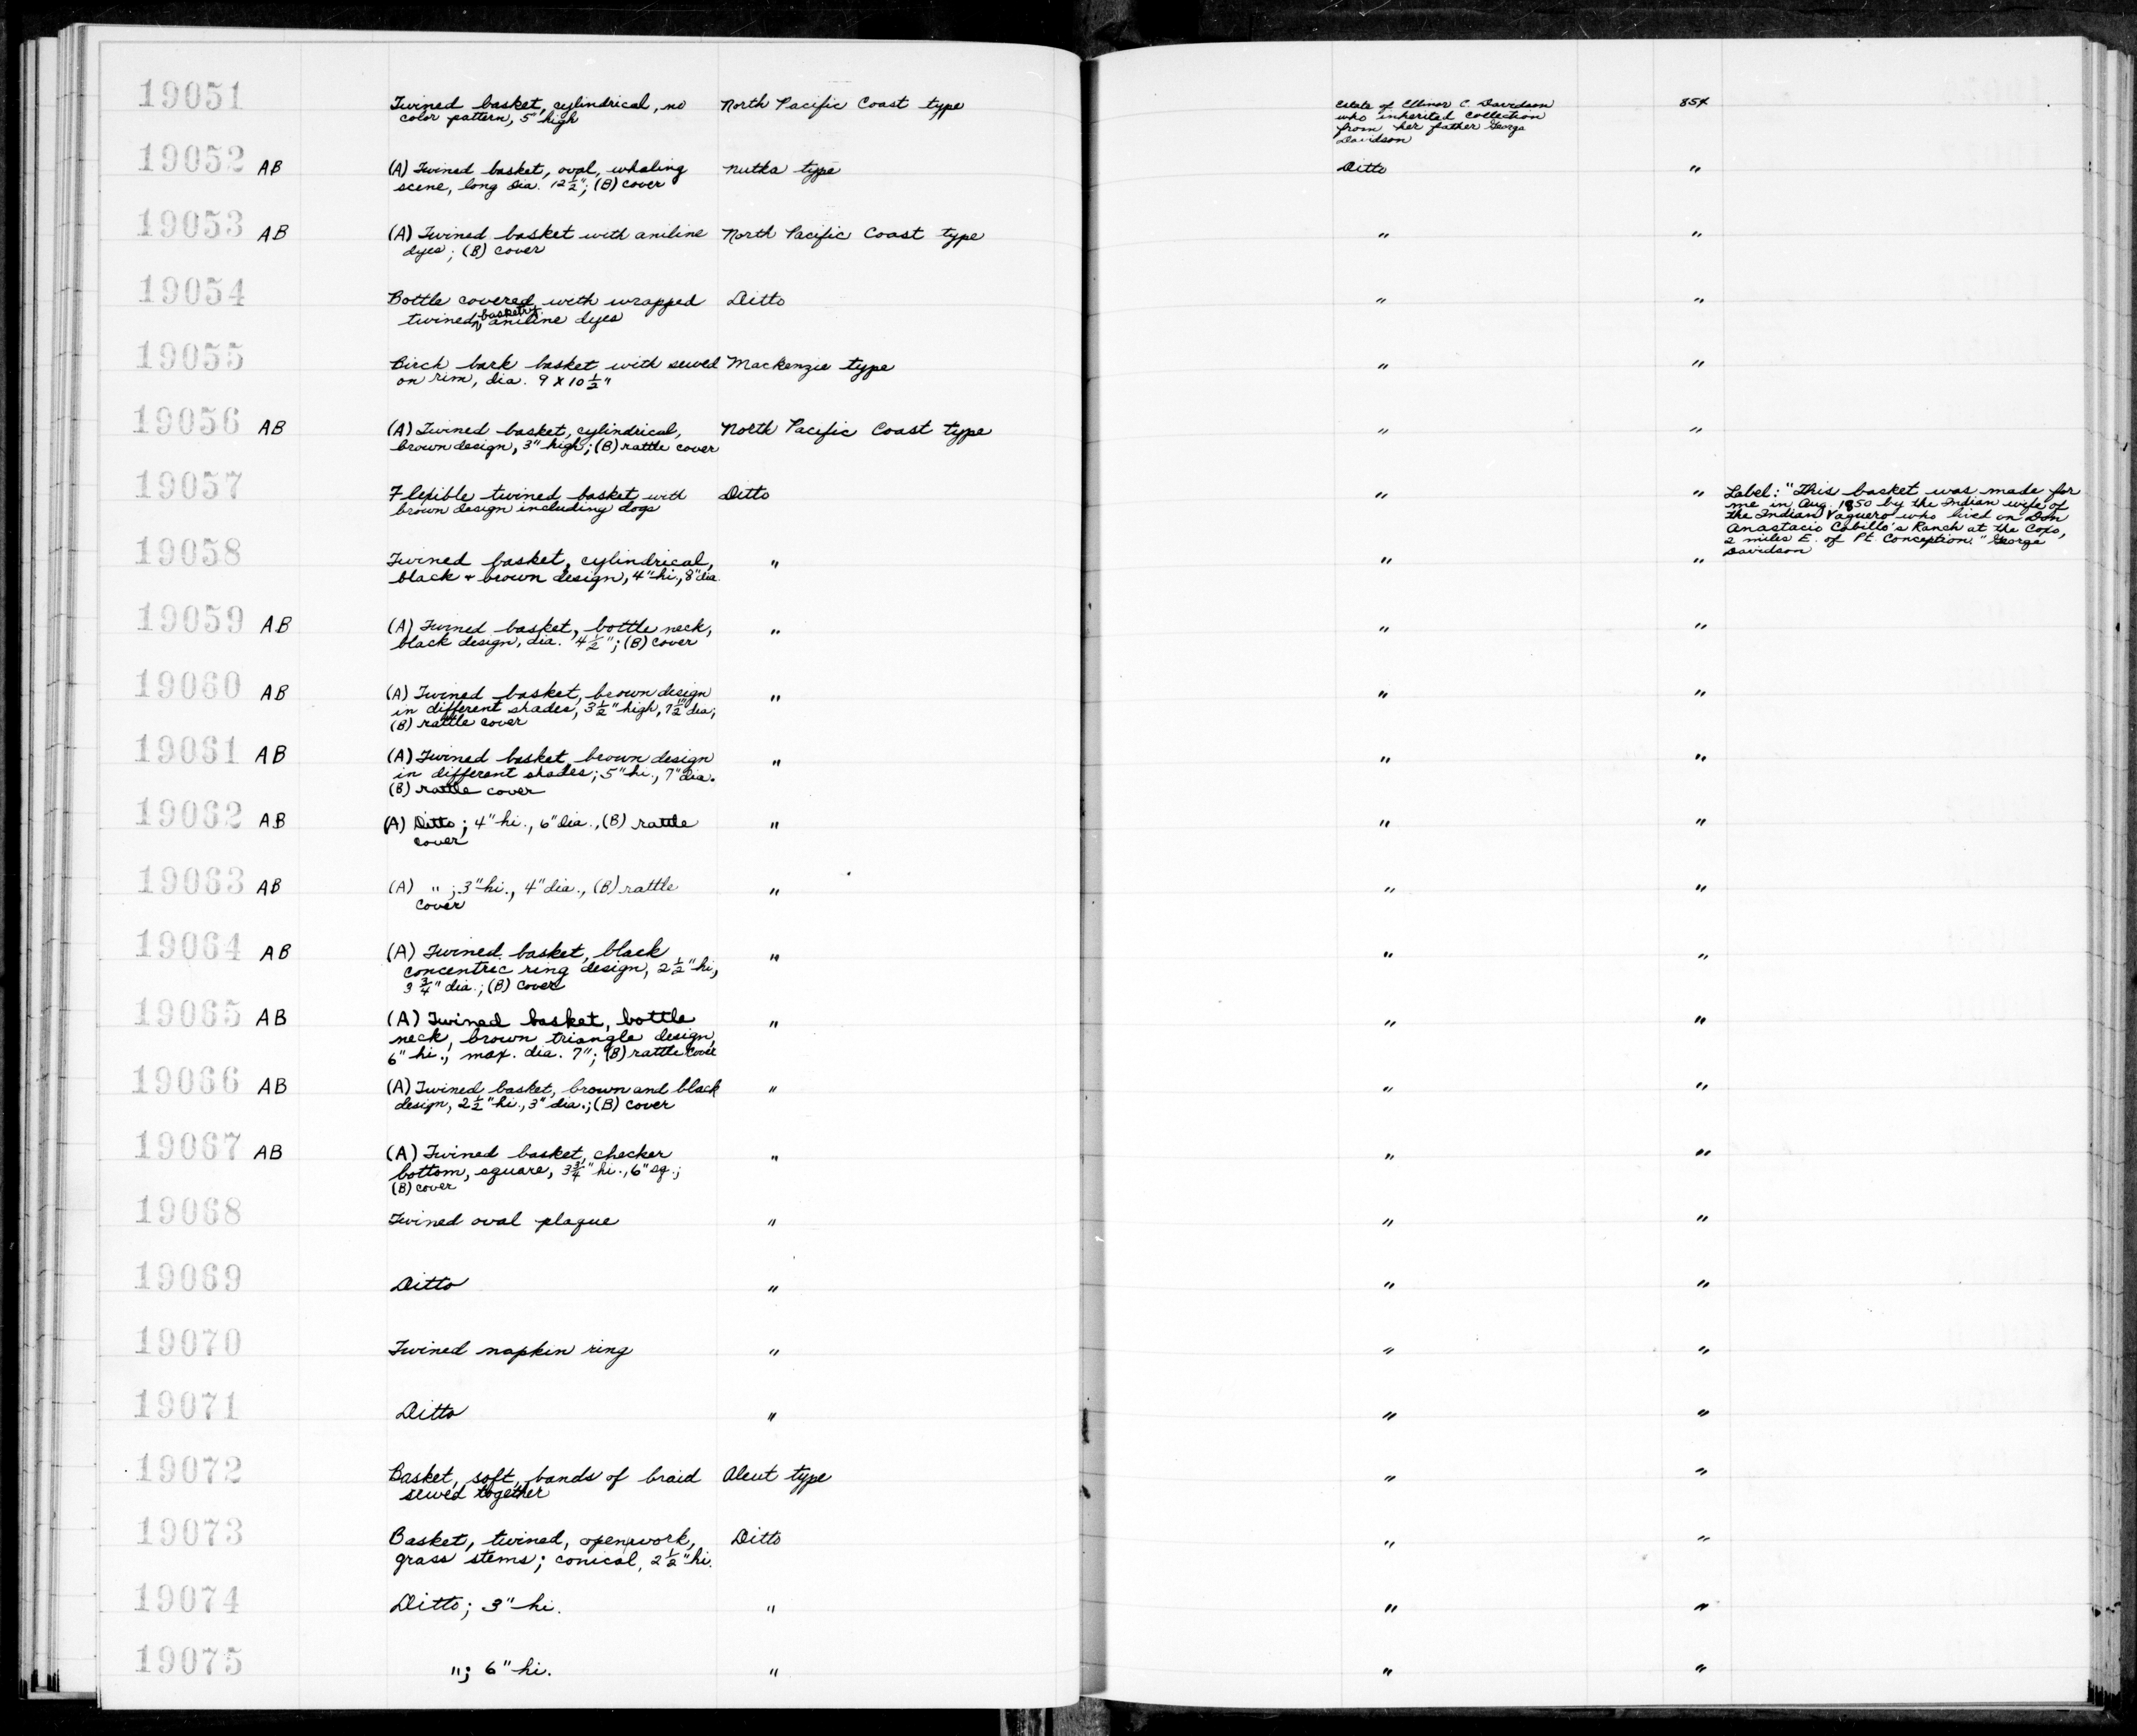 19051 Twined basket, cylindrical, no North Pacific Coast type Estate of Ellinor C. Davidson 854
color pattern, 5" high who inherited collection
from her father George
Davidson
19052 AB (A) Twined basket, oval, whaling Nutka type Ditto "
scene, long dia. 12 1/2"; (B) cover
19053 AB (A) Twined basket with aniline North Pacific Coast type " "
dyes; (B) cover
19054 Bottle covered with wrapped Ditto " "
twined basketry, aniline dyes
19055 Birch bark basket with sewed Mackenzie type " "
on rim, dia. 9 x 10 1/2"
19056 AB (A) Twined basket, cylindrical, North Pacific Coast type " "
brown design, 3" high; (B) rattle cover
19057 Flexible twined basket with Ditto " " Label: "This basket was made for
brown design including dogs me in Aug. 1850 by the Indian wife of
the Indian Vaquero who lived on Don
Anastacio Cabillo's Ranch at the Coxo,
2 miles E. of Pt. Conception." George
Davidson
19058 Twined basket, cylindrical, " " "
black + brown design, 4" hi., 8" dia.
19059 AB (A) Twined basket, bottle neck, " " "
black design, dia. 4 1/2"; (B) cover
19060 AB (A) Twined basket, brown design " " "
in different shades, 3 1/2" high, 7 1/2" dia;
(B) rattle cover
19061 AB (A) Twined basket, brown design " " "
in different shades; 5" hi., 7" dia.
(B) rattle cover
19062 AB (A) Ditto; 4" hi., 6" dia., (B) rattle " " "
cover
19063 AB (A) " ; 3" hi., 4" dia., (B) rattle " " "
cover
19064 AB (A) Twined basket, black " " "
concentric ring design, 2 1/2" hi,
3 3/4" dia.; (B) cover
19065 AB (A) Twined basket, bottle " " "
neck, brown triangle design,
6" hi., max. dia. 7"; (B) rattle cover
19066 AB (A) Twined basket, brown and black " " "
design, 2 1/2" hi., 3" dia.; (B) cover
19067 AB (A) Twined basket, checker " " "
bottom, square, 3 3/4" hi., 6" sq.;
(B) cover
19068 Twined oval plaque " " "
19069 Ditto " " "
19070 Twined napkin ring " " "
19071 Ditto " " "
19072 Basket, soft, bands of braid Aleut type " "
sewed together
19073 Basket, twined, openwork, Ditto " "
grass stems; conical, 2 1/2" hi.
19074 Ditto; 3" hi. " " "
19075 "; 6" hi. " " "